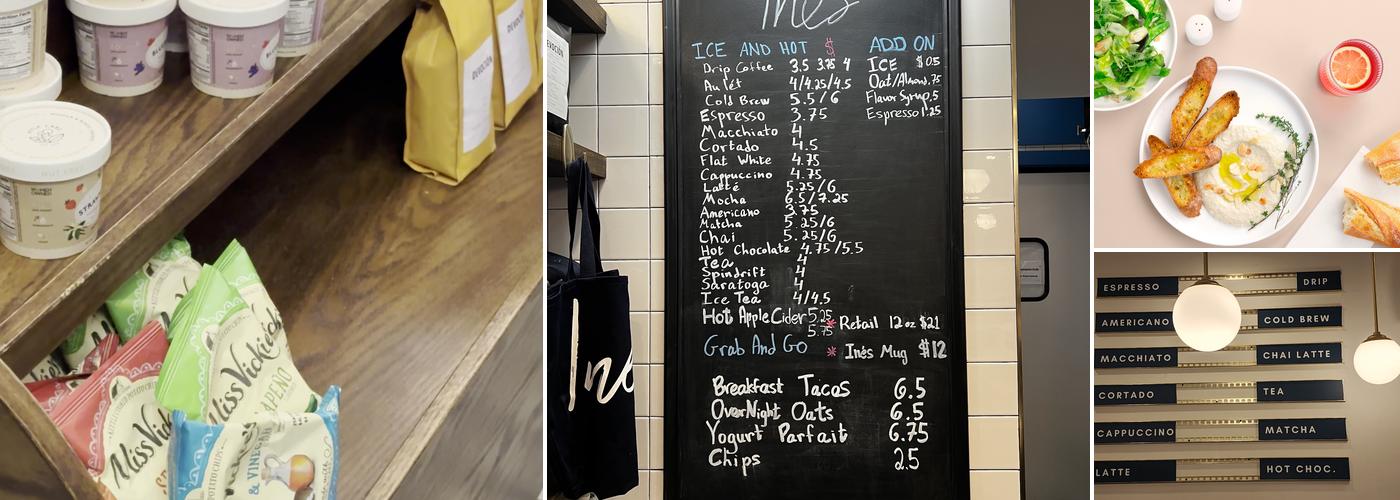 STRAW
DEVOCIÓN
DEVOCIÓN
Miss Vickie's
Miss Vickie's
JALAPEÑO
& VINEGAR
Inés
ICE AND HOT $
Drip Coffee 3.5 3.75 4
Au lét 4/4.25/4.5
Cold Brew 5.5/6
Espresso 3.75
Macchiato 4
Cortado 4.5
Flat White 4.75
Cappuccino 4.75
Latté 5.25/6
Mocha 6.5/7.25
Americano 3.75
Matcha 5.25/6
Chai 5.25/6
Hot Chocolate 4.75/5.5
Tea 4
Spindrift 4
Saratoga 4
Ice Tea 4/4.5
Hot Apple Cider 5.25
5.75
ADD ON
ICE $0.5
Oat/Almond .75
Flavor Syrup .5
Espresso 1.25
* Retail 12oz $21
* Inés Mug $12
Grab And Go
Breakfast Tacos 6.5
OverNight Oats 6.5
Yogurt Parfait 6.75
Chips 2.5
Iné
ESPRESSO DRIP
AMERICANO COLD BREW
MACCHIATO CHAI LATTE
CORTADO TEA
CAPPUCCINO MATCHA
LATTE HOT CHOC.